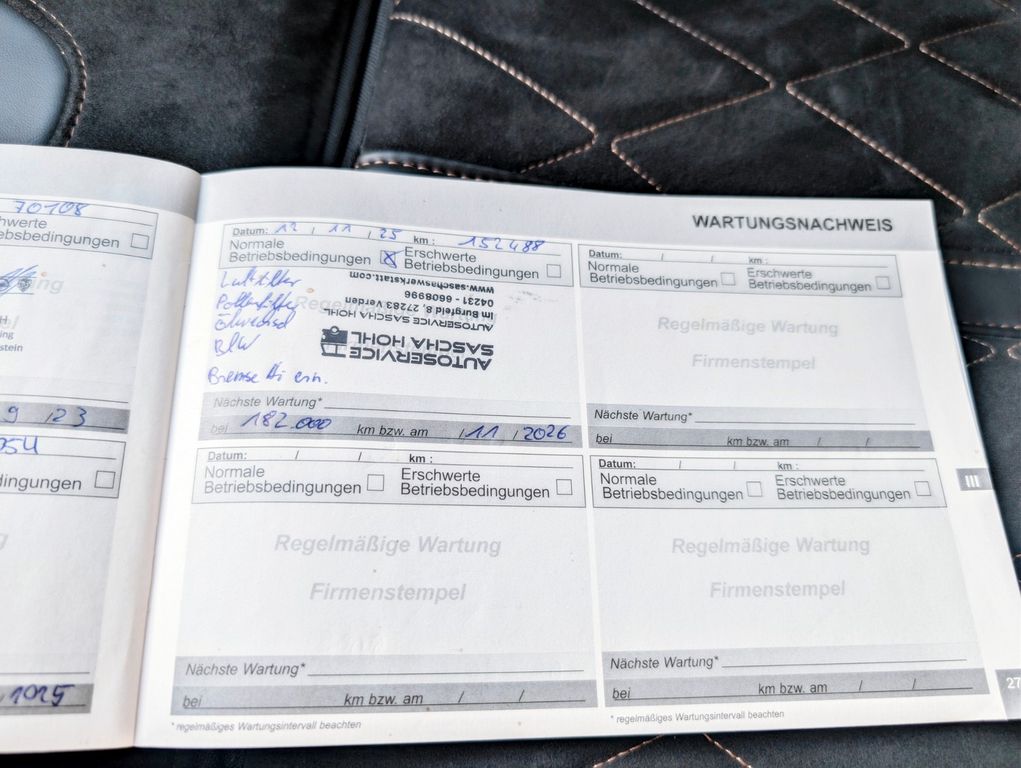 70108
hwerte
ebsbedingungen
H
ing
stein
9 / 23
054
dingungen
1025
WARTUNGSNACHWEIS
Datum: 12 / 11 / 25 km : 152488
Normale
Betriebsbedingungen
Erschwerte
Betriebsbedingungen
Luftfilter
Pollenfilter
Ölwechsel
Bremse
AUTOSERVICE
SASCHA HOHL
AUTOSERVICE SASCHA HOHL
Im Burgfeld 8, 27283 Verden
04231 - 6608996
www.saschaswerkstatt.com
Nächste Wartung*
bei 182.000 km bzw. am / 11 / 2026
Datum: / / km :
Normale
Betriebsbedingungen
Erschwerte
Betriebsbedingungen
Regelmäßige Wartung
Firmenstempel
Nächste Wartung*
bei km bzw. am / /
Datum: / / km :
Normale
Betriebsbedingungen
Erschwerte
Betriebsbedingungen
Regelmäßige Wartung
Firmenstempel
Nächste Wartung*
bei km bzw. am / /
* regelmäßiges Wartungsintervall beachten
Datum: / / km :
Normale
Betriebsbedingungen
Erschwerte
Betriebsbedingungen
Regelmäßige Wartung
Firmenstempel
Nächste Wartung*
bei km bzw. am / /
* regelmäßiges Wartungsintervall beachten
III
27